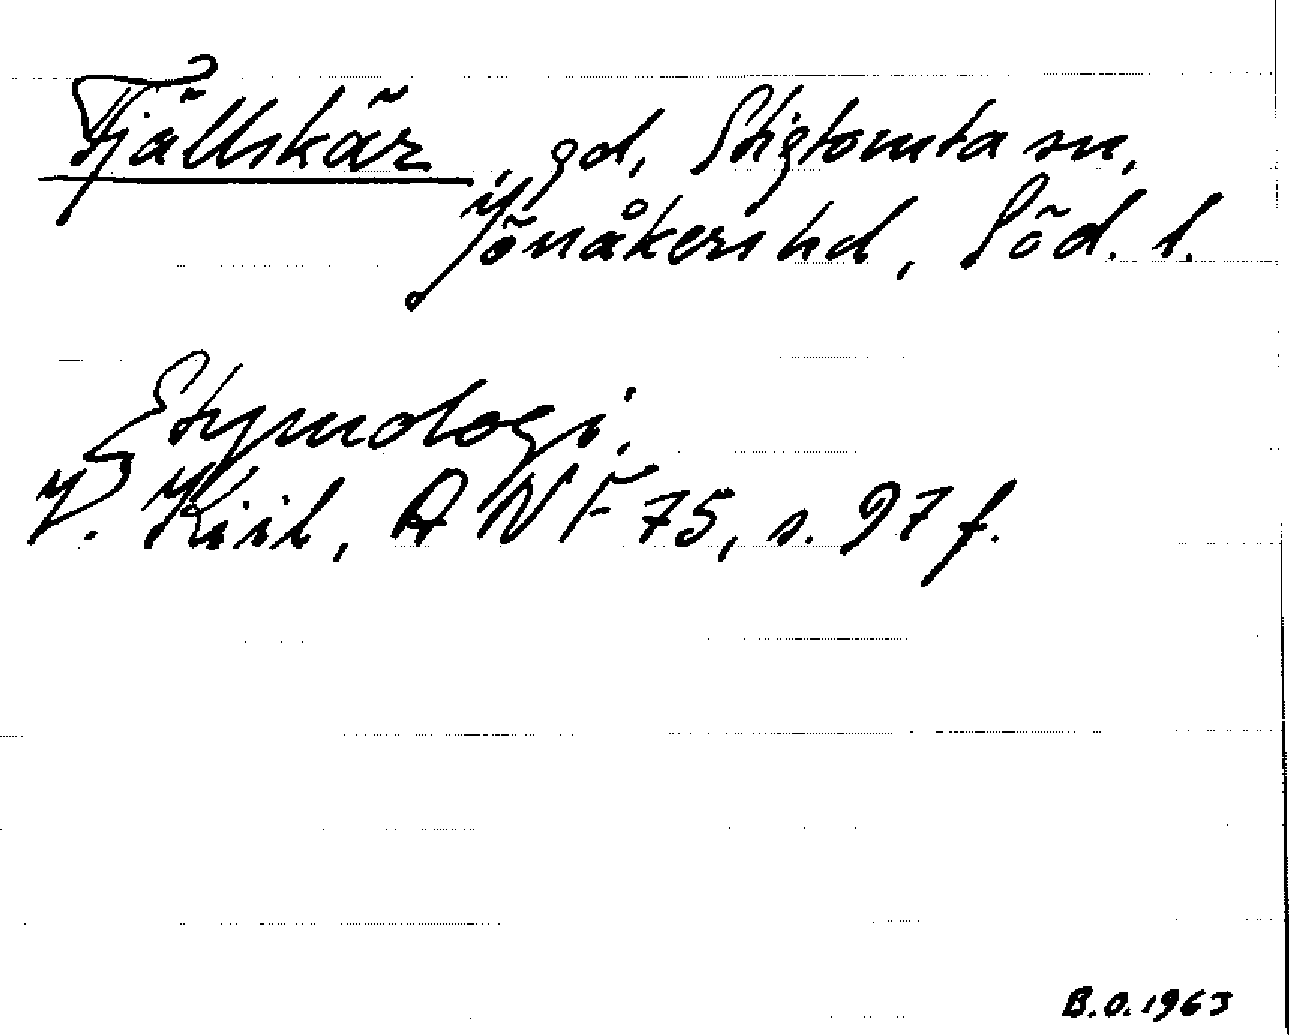 Fjällskär, gd, Stigtomta sn,
Jönåkers hd, Söd. l.
Etymologi.
V. Kiil, ANF 75, s. 97 f.
B.O. 1963